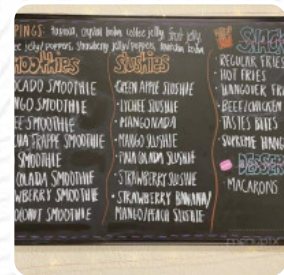 PINGS: tapioca, crystal boba, coffee jelly, fruit jelly,
ee jelly/poppers, strawberry jelly/poppers,
MOOTHIES
CADO SMOOTHIE
NGO SMOOTHIE
EE SMOOTHIE
HA FRAPPE SMOOTHIE
SMOOTHIE
COLADA SMOOTHIE
WBERRY SMOOTHIE
COCONUT SMOOTHIE
Slushies
- GREEN APPLE SLUSHIE
- LYCHEE SLUSHIE
- MANGONADA
- MANGO SLUSHIE
- PINA COLADA SLUSHIE
- STRAWBERRY SLUSHIE
- STRAWBERRY BANANA/
MANGO/PEACH SLUSHIE
SNACK
- REGULAR FRIES
- HOT FRIES
- HANGOVER FR
- BEEF/CHICKEN
- TASTES BITES
- SUPREME
DESSER
- MACARONS